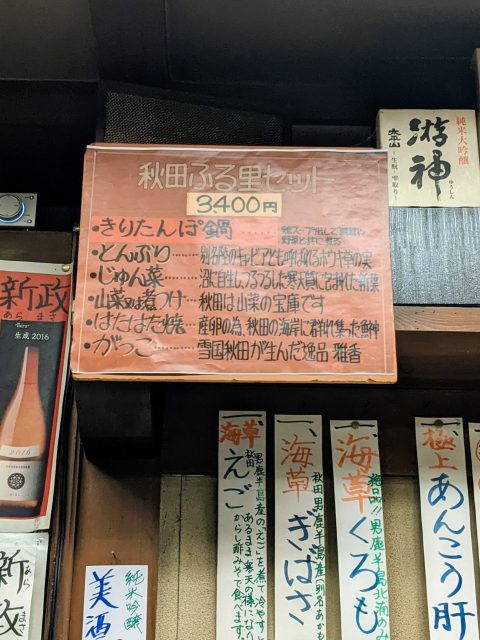 秋田ふる里セット
3,400円
・きりたんぽ鍋
野菜と共に煮る
・とんぶり……別名畑のキャビアと呼ばれるホウキ草の実
・じゅん菜……沼に自生しつるつるした寒天質に
・山菜お煮つけ…秋田は山菜の宝庫です
・はたはた焼……産卵の為、秋田の海岸に群れ集った魚神
・がっこ……雪国秋田が生んだ逸品 雅香
純米大吟醸
游神
ゆうしん
太平山
―生酛・雫取り―
新政
あらまさ
生成 2016
2016
新政
あらまさ
純米吟醸
美酒
一、海草えご
秋田 男鹿半島産のえごを煮て冷やすと
あるまま寒天の様になり
からし酢みそで食べます。
一、海草ぎばさ
秋田男鹿半島産(別名あか
一、海草くろも
男鹿半島北浦のみ
一、極上あんこう肝